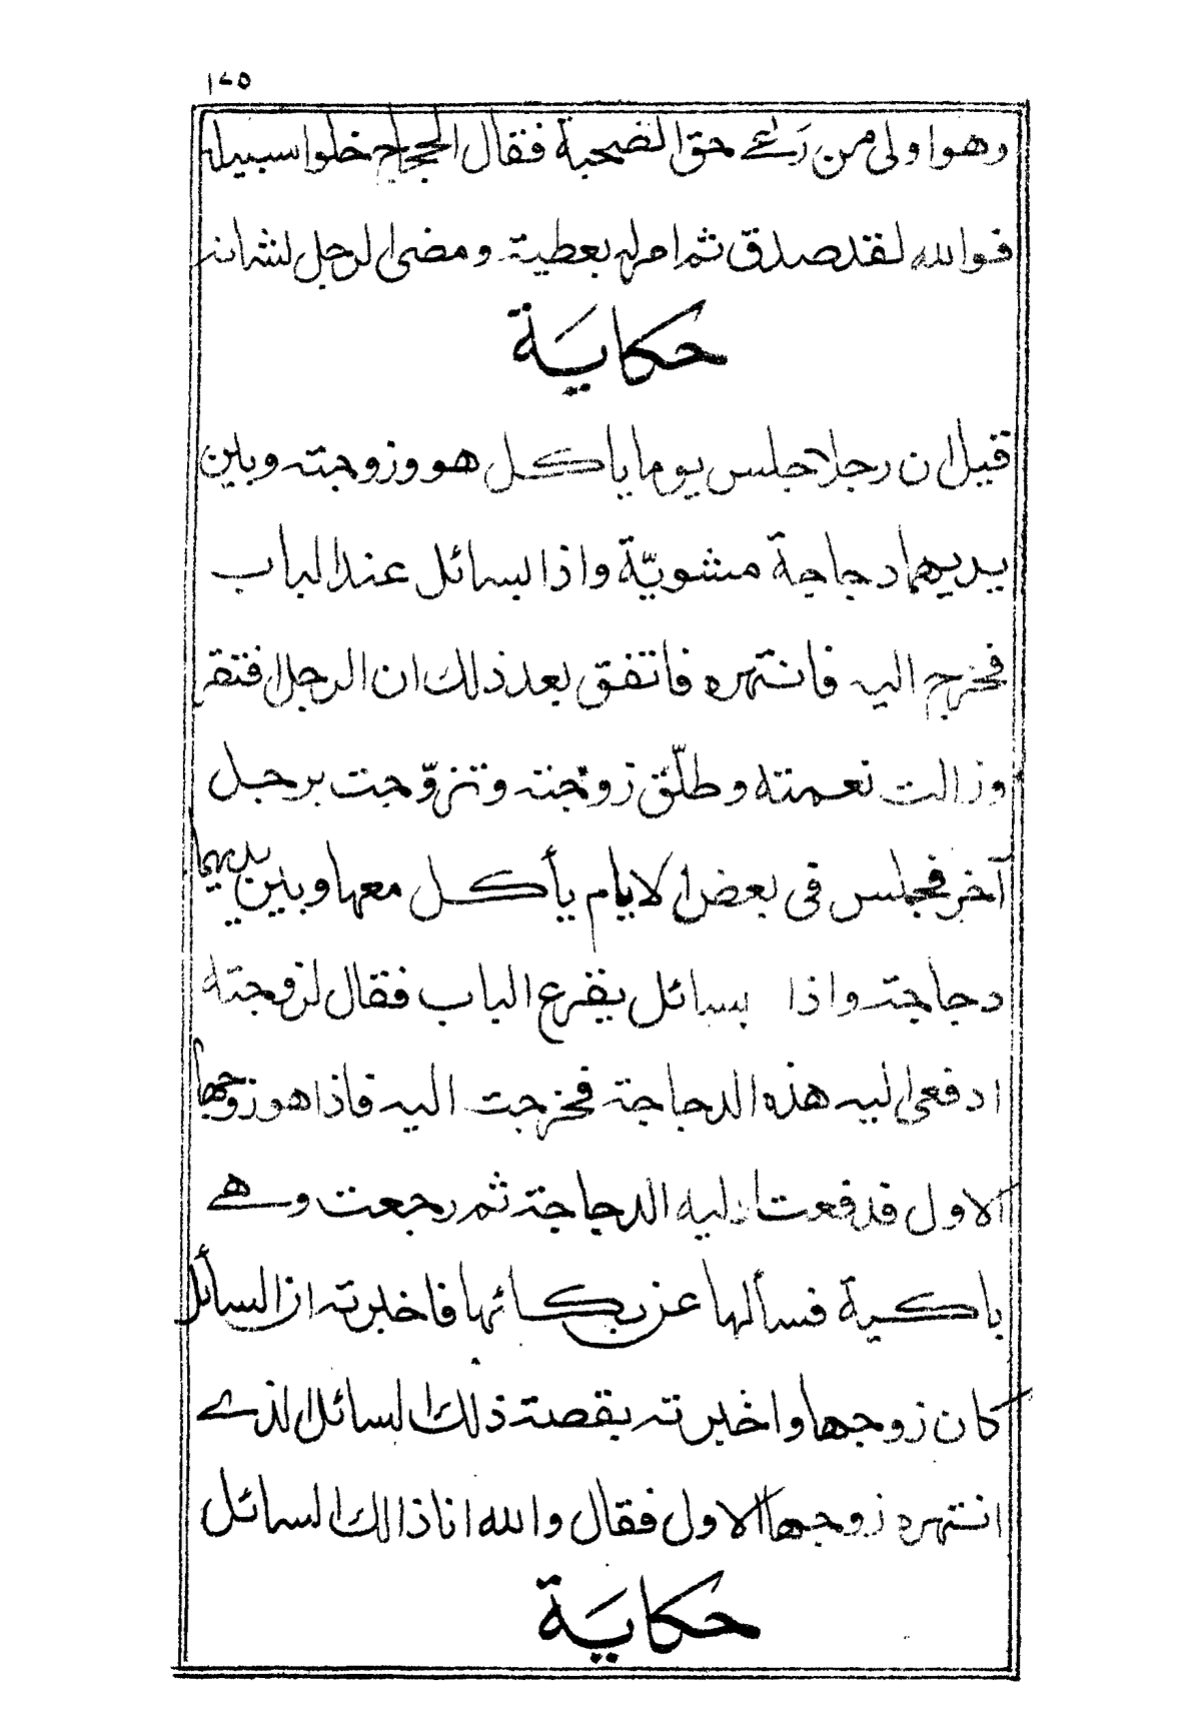 ١٢٥
وهو اولى من رَعے حق الصحبة فقال الحجاج خلوا سبيله
فوالله لقد صدق ثم امر له بعطية ومضى الرجل لشانه
حكايَة
قيل ان رجلا جلس يوما يا كل هو وزوجته وبين
يديهما دجاجة مشويّة واذا بسائل عند الباب
فخرج اليه فانتهره فاتفق بعد ذلك ان الرجل افتقر
وزالت نعمته وطلّق زوجته وتزوّجت برجل
آخر فجلس فى بعض الايام يأكل معها وبين يديهما
دجاجة واذا بسائل يقرع الباب فقال لزوجته
ادفعى اليه هذه الدجاجة فخرجت اليه فاذا هو زوجها
الاول فدفعت اليه الدجاجة ثم رجعت وهے
باكية فسألها عن بكائها فاخبرته ان السائل
كان زوجها واخبرته بقصة ذلك السائل الذے
انتهره زوجها الاول فقال والله انا ذالك السائل
حكايَة